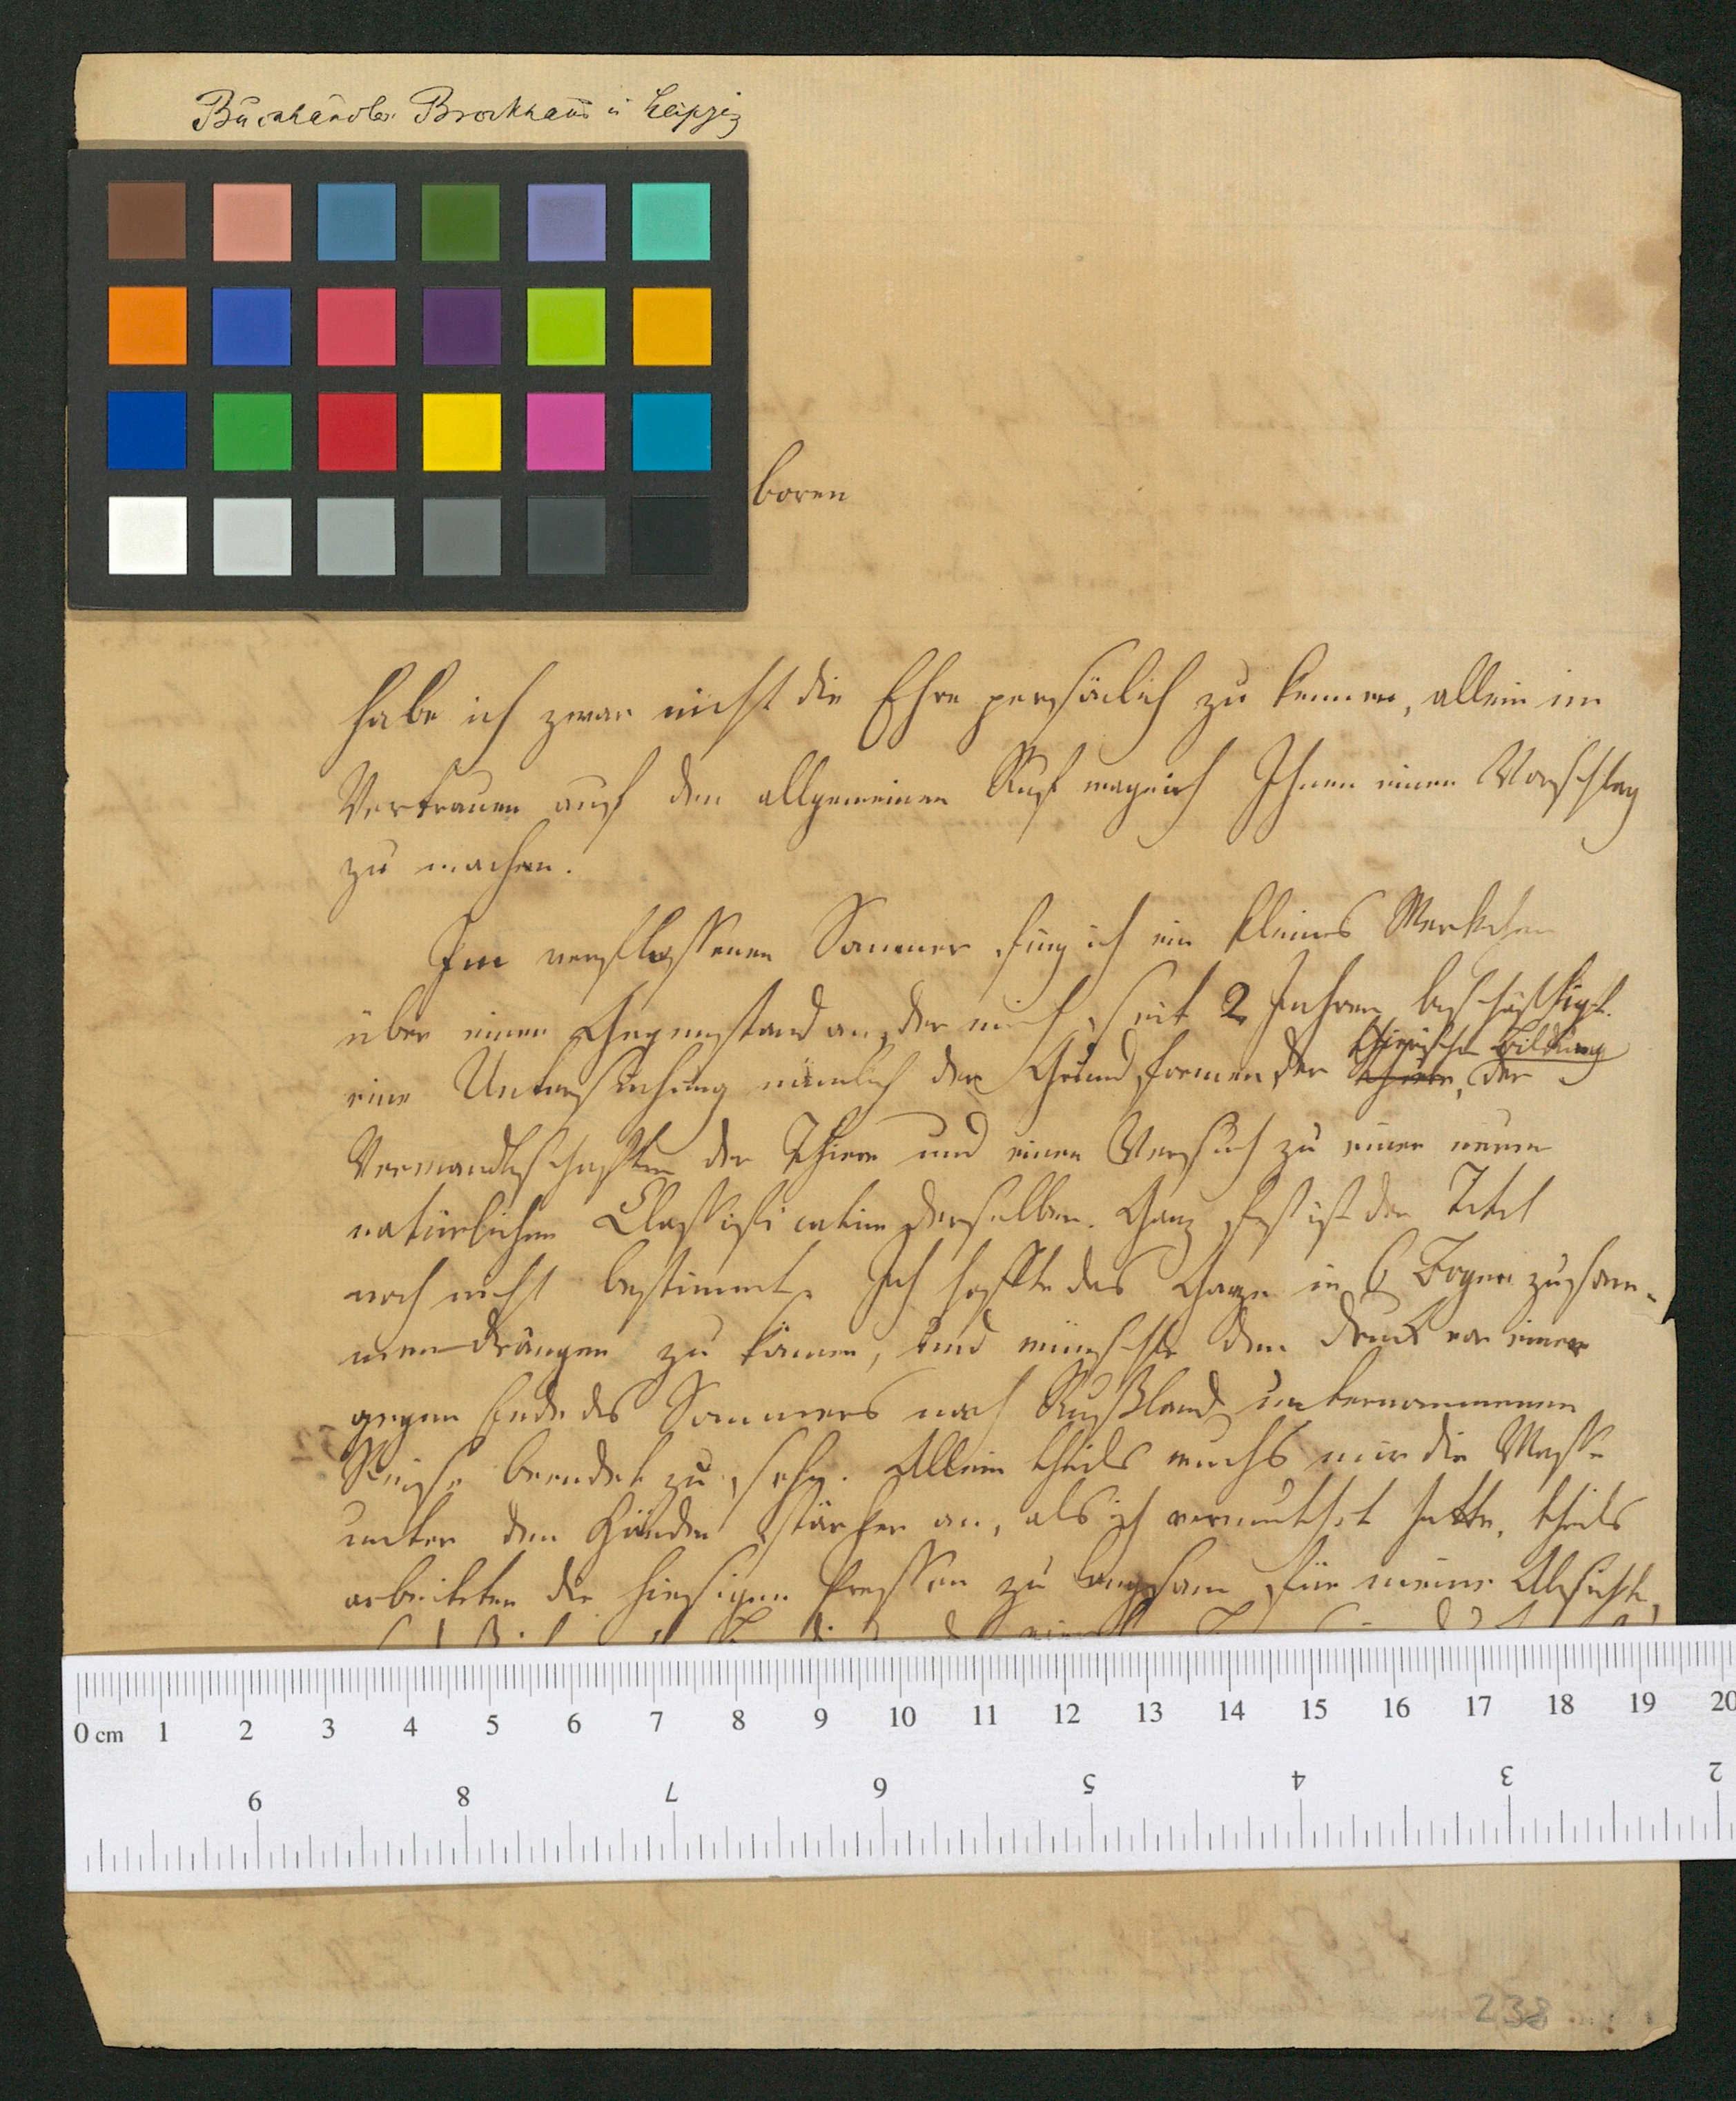 Buchhändler Brockhaus in Leipzig
boren
habe ich zwar nicht die Ehre persönlich zu kennen, allein im
Vertrauen auf den allgemeinen Ruf wage ich Ihnen einen Vorschlag
zu machen.
Im verflossenen Sommer fing ich ein kleines Werkchen
über einen Gegenstand an, der mich seit 2 Jahren beschäftigt.
thierischen Bildung
eine Untersuchung nämlich der Grundformen der Thiere, der
Verwandtschaften der Thiere und einen Versuch zu einer neuen
natürlichen Classification derselben. Ganz fest ist der Titel
noch nicht bestimmt. Ich hoffte das Ganze in 6 Bogen zusam-
mendrängen zu können, und wünschte den Druck vor einer
gegen Ende des Sommers nach Rußland unternommenen
Reise beendet zu sehn. Allein theils wuchs mir die Masse
unter den Händen stärker an, als ich vermuthet hatte, theils
arbeiteten die hiesigen Pressen zu langsam für meine Absicht,
0 cm 1 2 3 4 5 6 7 8 9 10 11 12 13 14 15 16 17 18 19 20
9 8 7 6 5 4 3 2
238